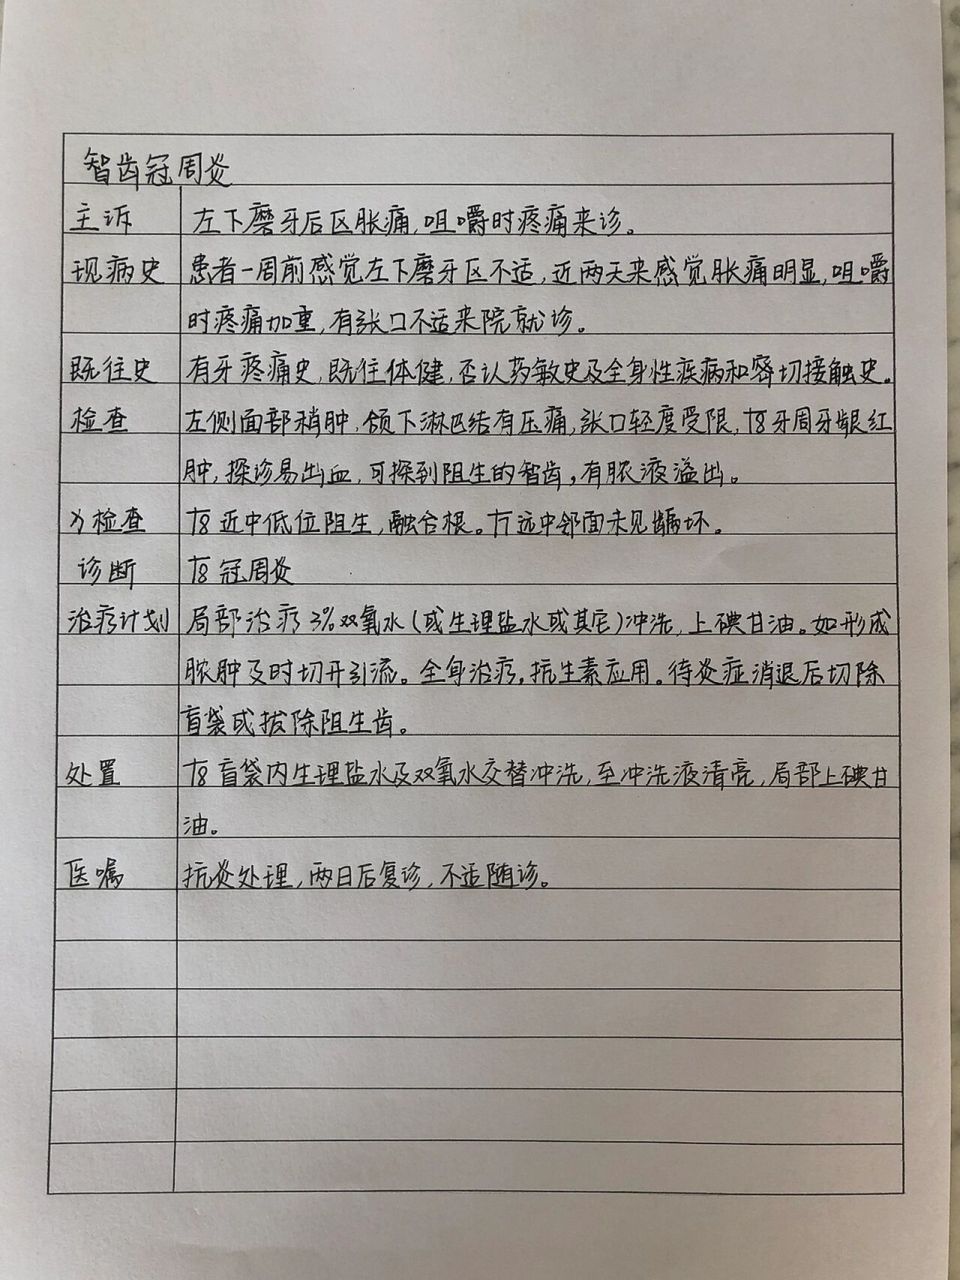 智齿冠周炎
主诉 左下磨牙后区胀痛,咀嚼时疼痛来诊。
现病史 患者一周前感觉左下磨牙区不适,近两天来感觉胀痛明显,咀嚼
时疼痛加重,有张口不适来院就诊。
既往史 有牙疼痛史,既往体健,否认药敏史及全身性疾病和密切接触史。
检查 左侧面部稍肿,颌下淋巴结有压痛,张口轻度受限,⎾8牙周牙龈红
肿,探诊易出血,可探到阻生的智齿,有脓液溢出。
X检查 ⎾8近中低位阻生,融合根。⎾7远中邻面未见龋坏。
诊断 ⎾8冠周炎
治疗计划 局部治疗3%双氧水(或生理盐水或其它)冲洗,上碘甘油。如形成
脓肿及时切开引流。全身治疗,抗生素应用。待炎症消退后切除
盲袋或拔除阻生齿。
处置 ⎾8盲袋内生理盐水及双氧水交替冲洗,至冲洗液清亮,局部上碘甘
油。
医嘱 抗炎处理,两日后复诊,不适随诊。